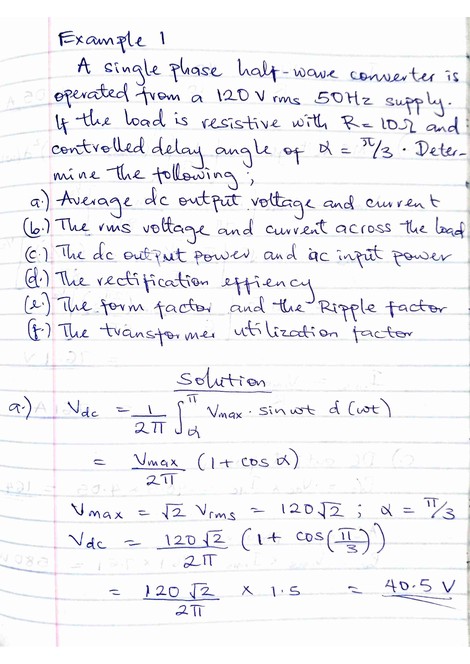 Example 1
A single phase half-wave converter is
operated from a 120 V rms 50Hz supply.
If the load is resistive with R = 10Ω and
controlled delay angle of α = π/3 . Deter-
mine the following;
a.) Average dc output voltage and current
(b.) The rms voltage and current across the load
(c.) The dc output power and ac input power
(d.) The rectification effiency
(e.) The form factor and the Ripple factor
(f.) The transformer utilization factor
Solution
a.) Vdc = 1/2π ∫α^π Vmax . sinwt d(wt)
= Vmax/2π (1 + cos α)
Vmax = √2 Vrms = 120√2 ; α = π/3
Vdc = 120√2/2π (1 + cos(π/3))
= 120√2/2π × 1.5 = 40.5 V